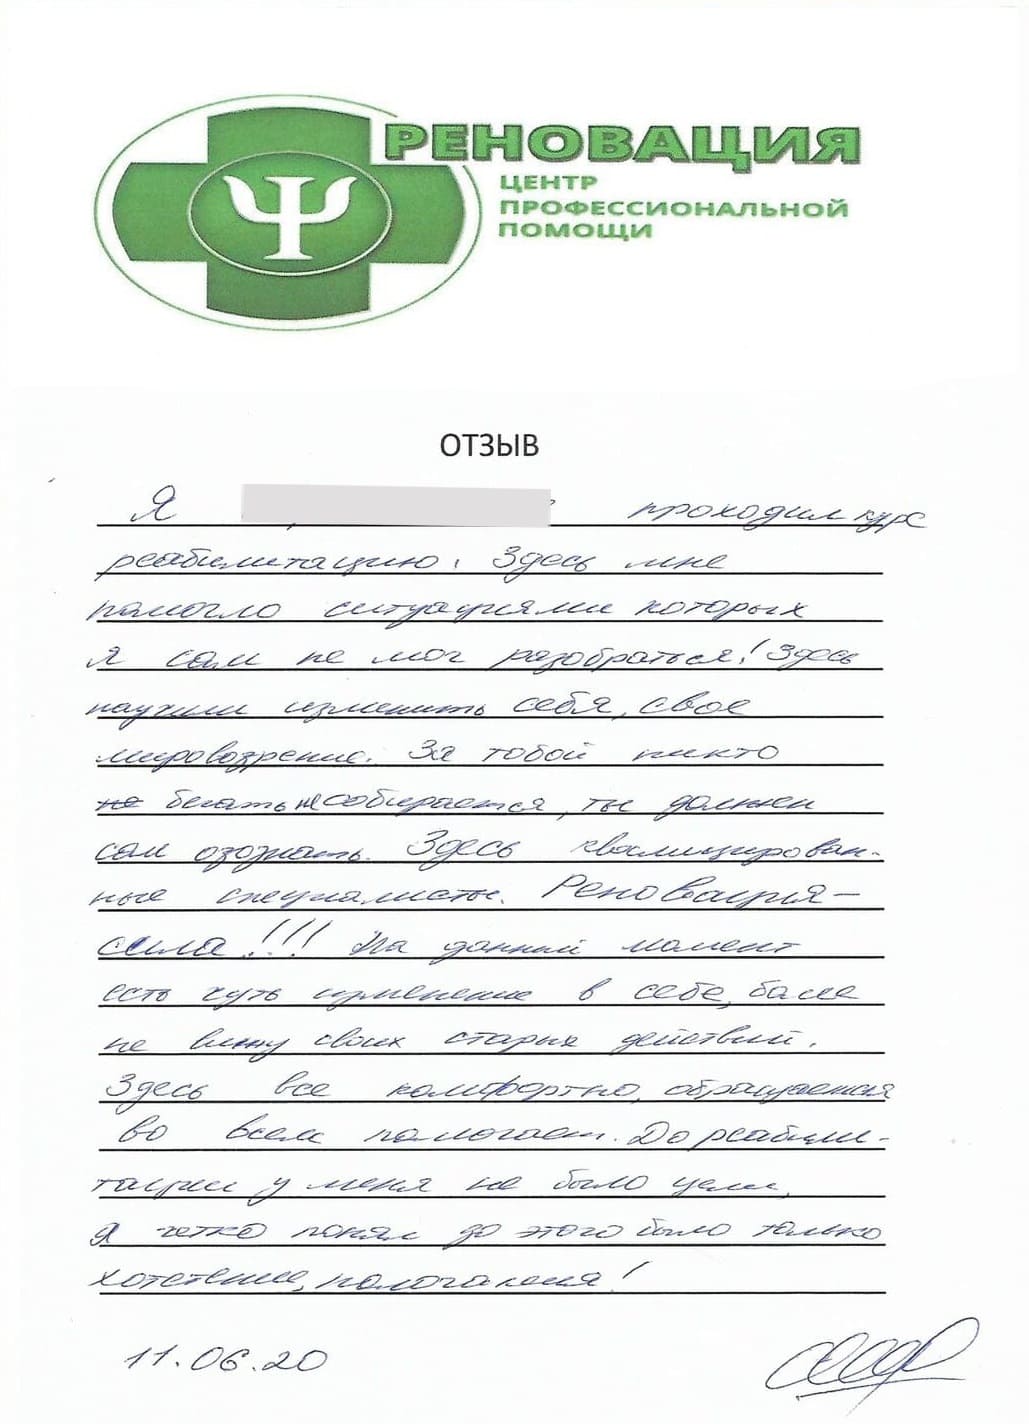 РЕНОВАЦИЯ
ЦЕНТР
ПРОФЕССИОНАЛЬНОЙ
ПОМОЩИ
ОТЗЫВ
Я проходил курс
реабилитацию. Здесь мне
помогло ситуациями которых
я сам не мог разобраться! Здесь
научили изменить себя, свое
мировозрение. За тобой никто
не бегать не собирается, ты должен
сам озознать. Здесь квалицирован-
ные специалисты. Реновация –
сила!!! На данный момент
есть чуть изменение в себе, более
не вижу своих старых действий.
Здесь все комфортно, обращаемся
во всем помогает. До реабили-
тации у меня не было цели,
я четко понял до этого было только
хотетение,
11.06.20